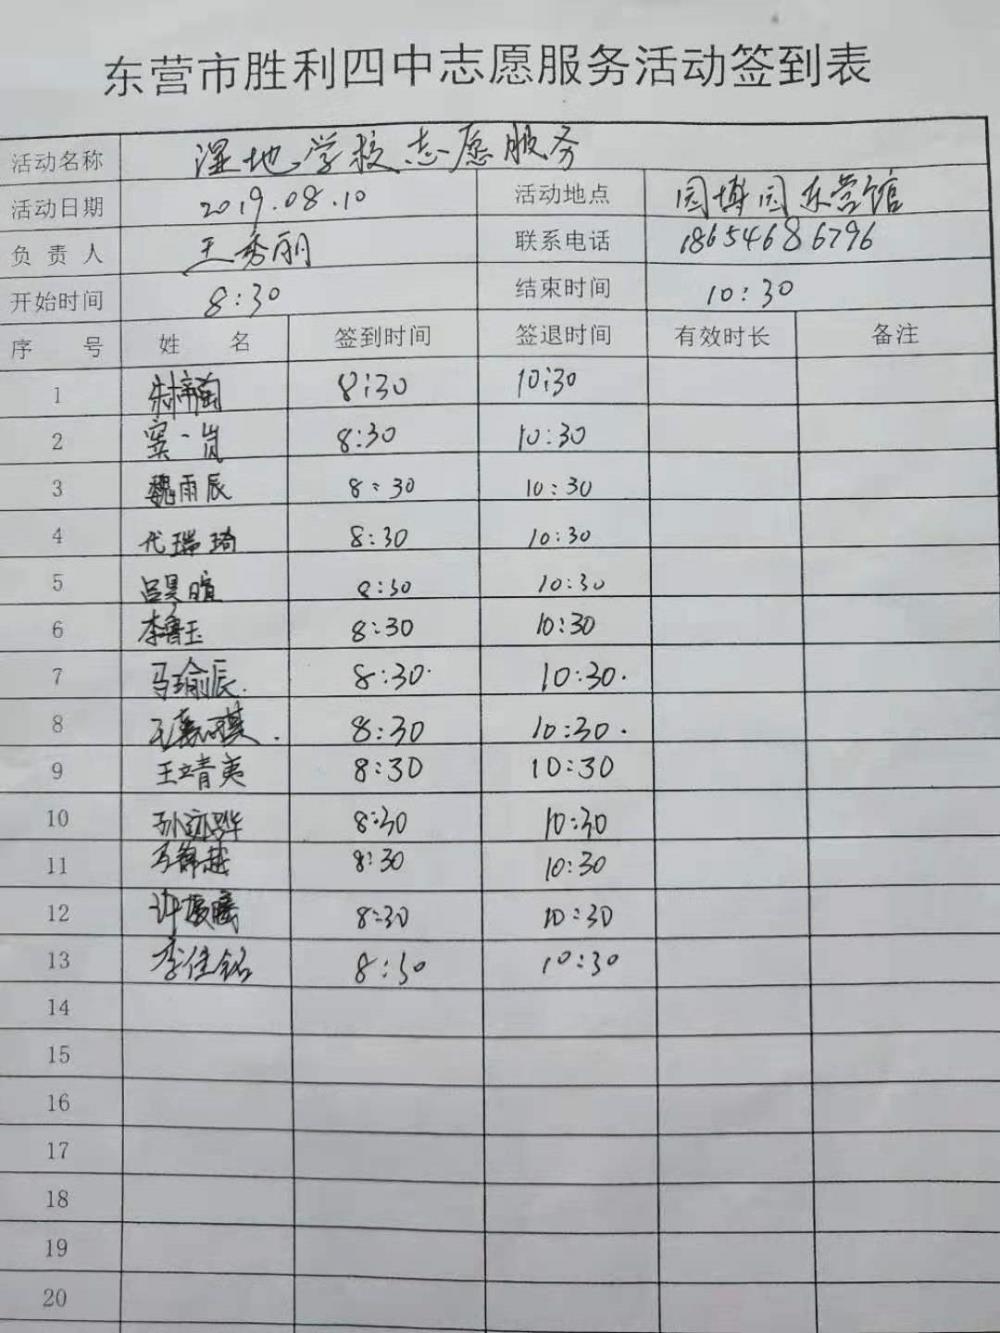 东营市胜利四中志愿服务活动签到表
活动名称 湿地学校志愿服务
活动日期 2019.08.10 活动地点 园博园东营馆
负责人 王秀丽 联系电话 18654686796
开始时间 8:30 结束时间 10:30
序号 姓名 签到时间 签退时间 有效时长 备注
1 8:30 10:30
2 窦一岚 8:30 10:30
3 魏雨辰 8:30 10:30
4 代瑞琦 8:30 10:30
5 吕昊暄 8:30 10:30
6 李鲁玉 8:30 10:30
7 马瑜辰. 8:30. 10:30.
8 8:30 10:30.
9 王靖夷 8:30 10:30
10 8:30 10:30
11 8:30 10:30
12 8:30 10:30
13 李佳铭 8:30 10:30
14
15
16
17
18
19
20